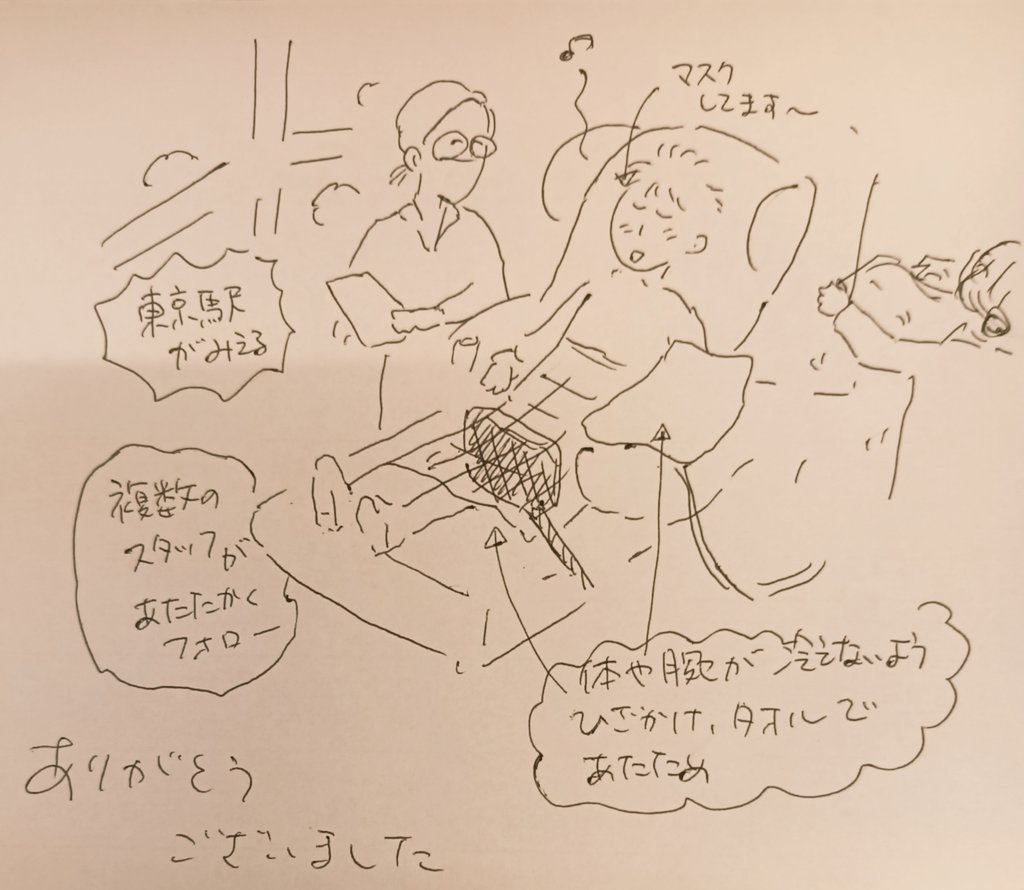 マスク
してます〜
東京駅
がみえる
複数の
スタッフが
あたたかく
フォロー
体や腕が冷えないよう
ひざかけ、タオルで
あたため
ありがとう
ございました